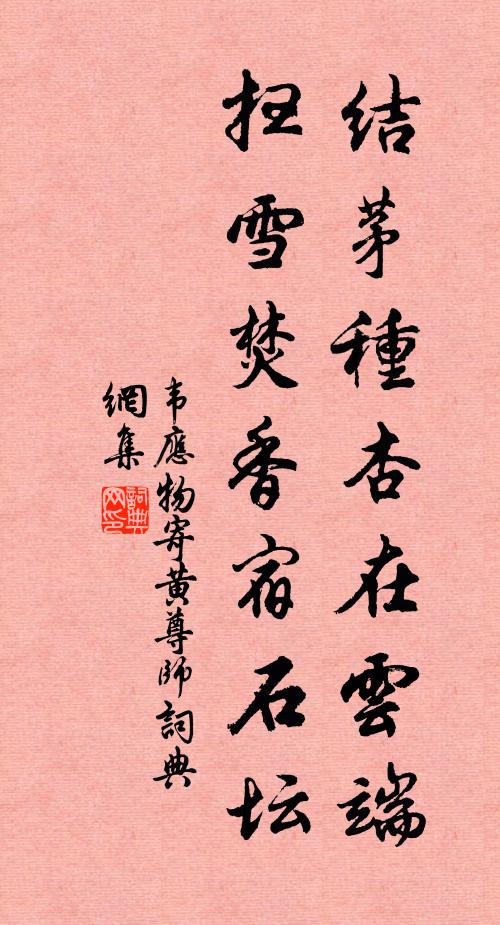 结茅種杏在雲端
扫雪焚香宿石坛
韦應物寄黄尊師詞典
網集
詞典
网印